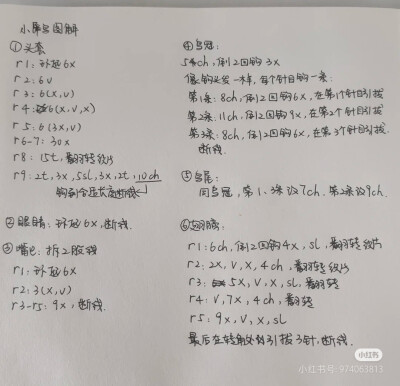 小犀鸟图解
①头套
r1：环起6x
r2：6v
r3：6(x,v)
r4：6(x,v,x)
r5：6(3x,v)
r6-7：30x
r8：15t，翻转织片
r9：2t,3x,5sl,3x,2t,10ch
断线
②眼睛：环起6x,断线。
③嘴巴：拆2股线
r1：环起6x
r2：3(x,v)
r3-r5：9x，断线。
④鸟冠：
54ch，倒2回钩3x
像钩头发一样，每个针目钩一条：
第1条：8ch，倒2回钩6x，在第1个针目引拔
第2条：11ch，倒2回钩9x，在第2个针目引拔
第3条：8ch，倒2回钩6x，在第3个针目引拔.
断线.
⑤鸟尾：
同鸟冠，第1、3条改7ch，第2条改9ch.
⑥翅膀：
r1：6ch，倒2回钩4x，sl，翻转织片
r2：2x,v,x,4ch，翻转织片
r3：5x,v,x,sl，翻转
r4：v,7x,4ch，翻转
r5：9x,v,x,sl
最后在转角处引拔3针，断线.
小红书
小红书号:974063813